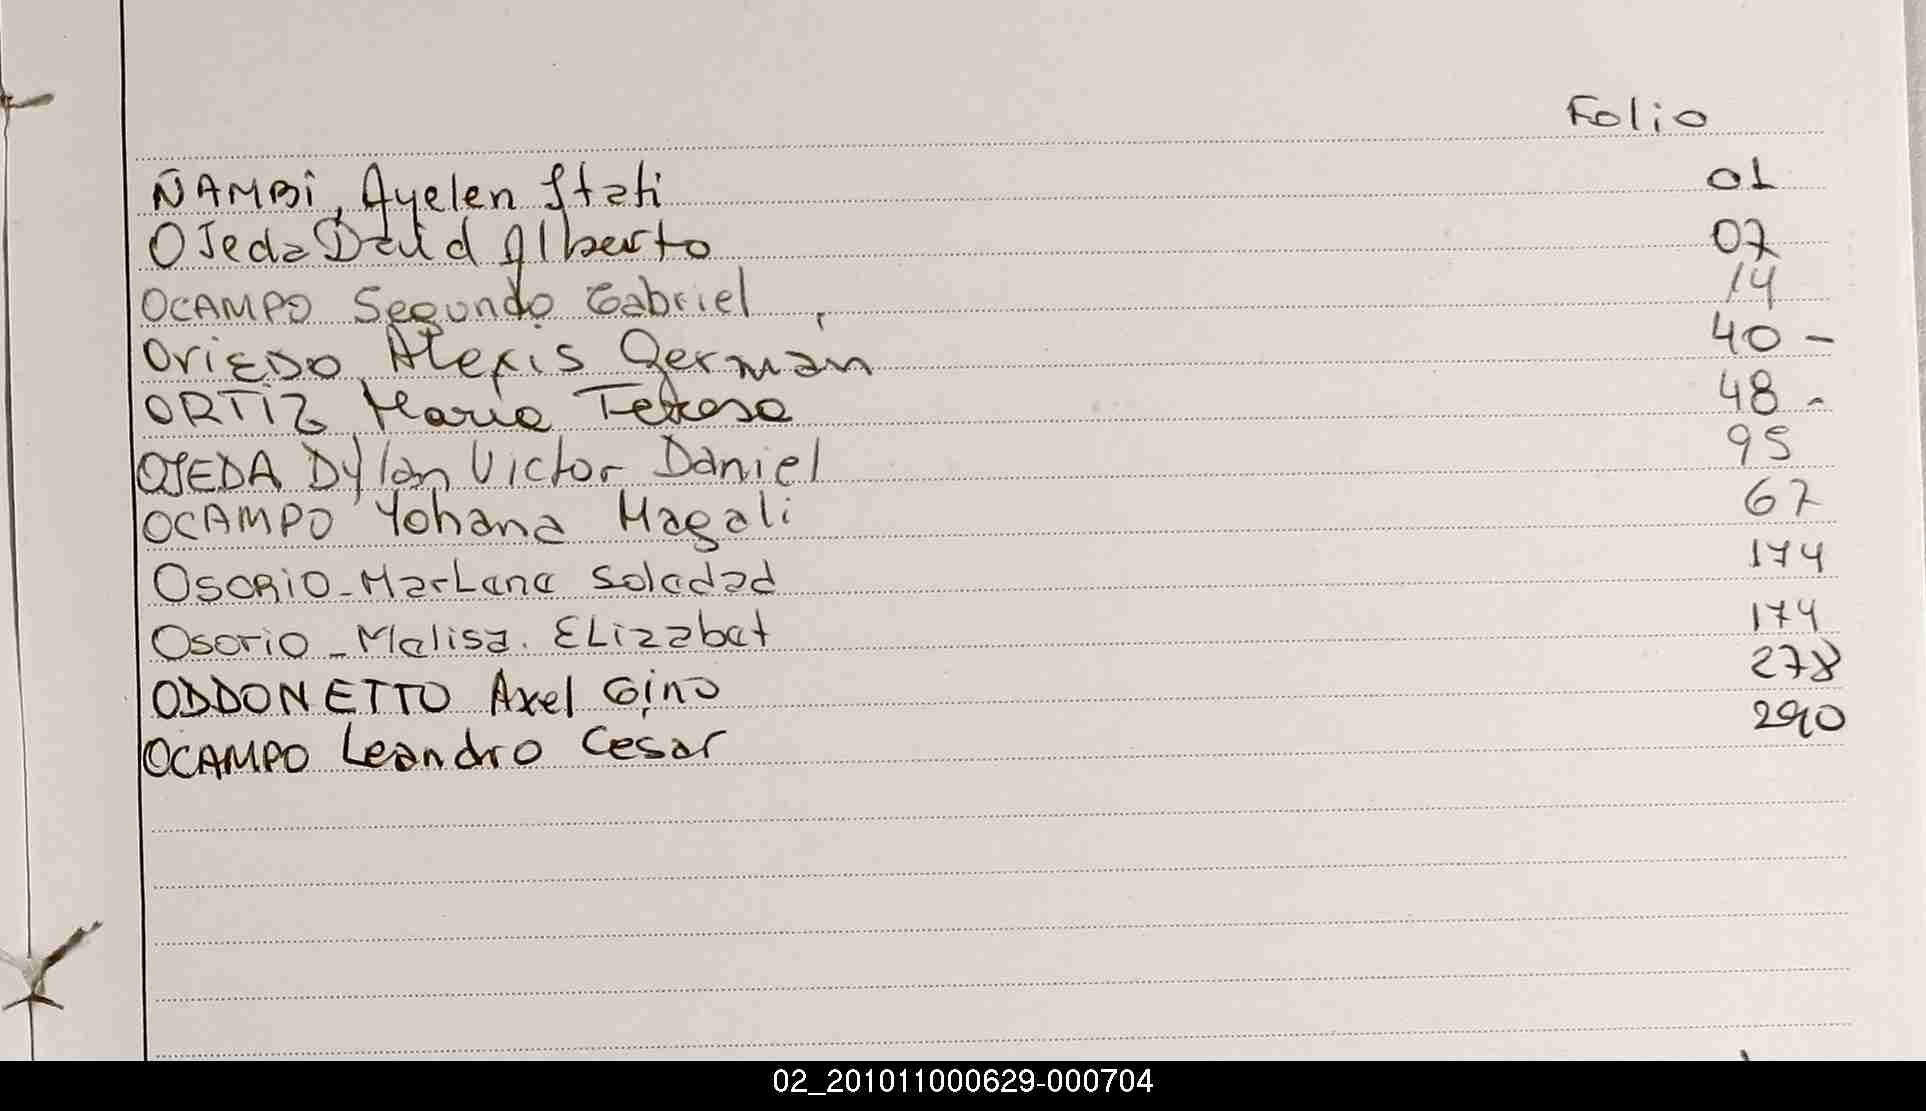 Folio
ÑAMBI, Ayelen Itati 01
OJeda David Alberto 07
OCAMPO Segundo Gabriel 14
OViEDO Alexis German 40 -
ORTIZ Maria Teresa 48 -
OJEDA Dylan Victor Daniel 95
OCAMPO Yohana Magali 67
OSORIO - MarLene Soledad 174
Osorio - Melisa. ELizabet 174
ODDONETTO Axel Gino 278
OCAMPO Leandro Cesar 290
02_201011000629-000704